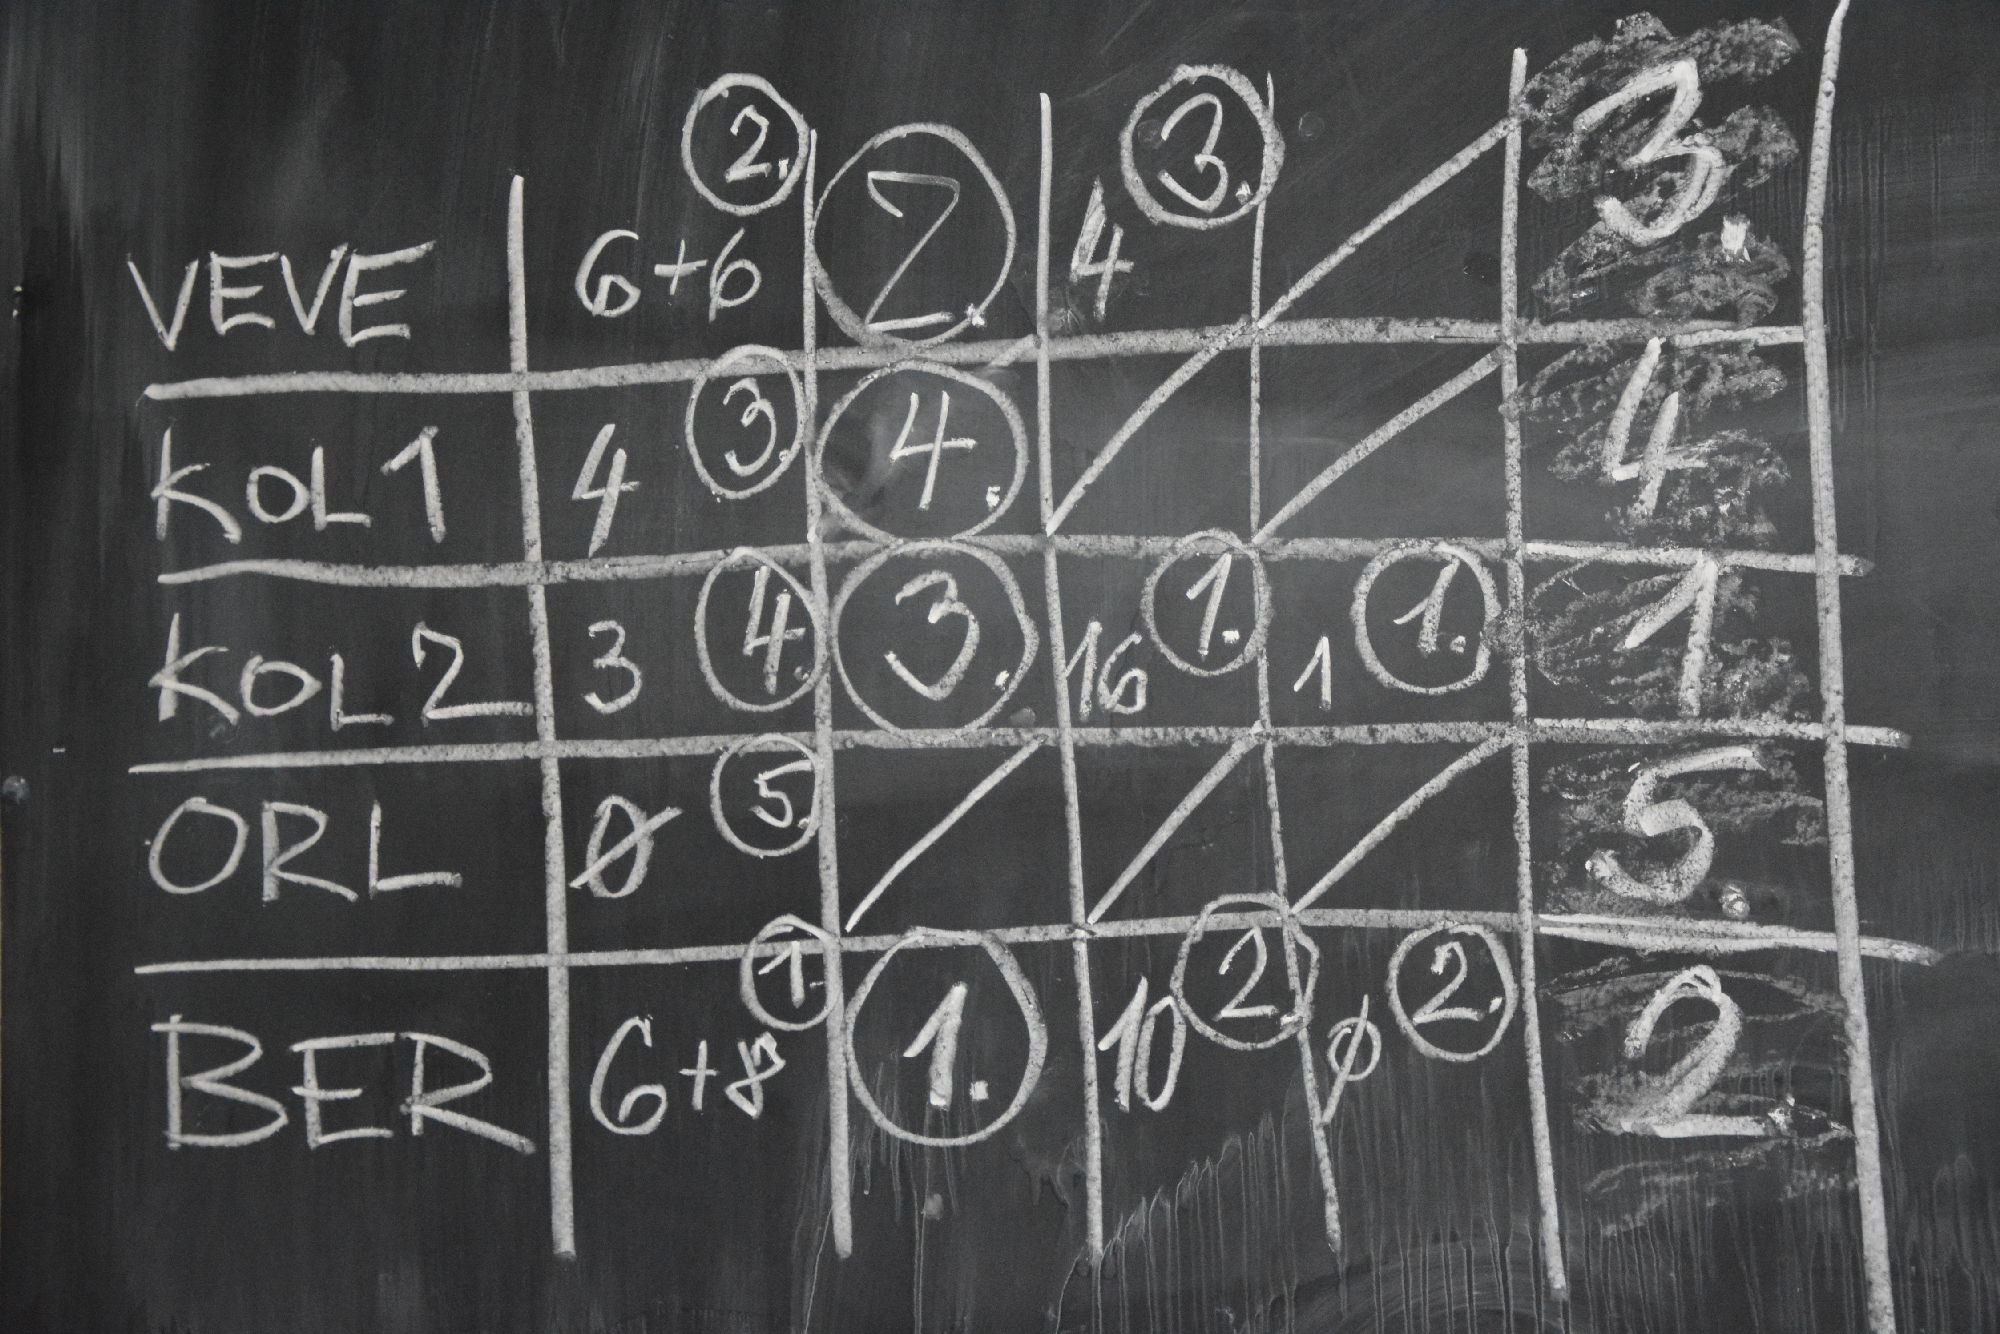 VEVE 6+6 2. 2. 4 3. 3.
KOL1 4 3. 4. 4
KOL2 3 4. 3. 16 1. 1 1. 1
ORL 0 5. 5.
BER 6+8 1. 1. 10 2. 0 2. 2.